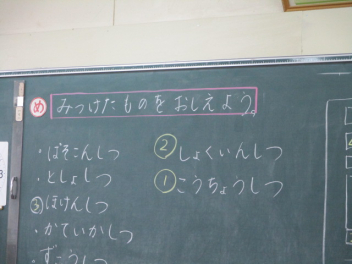 め みっけたものをおしえよう。
・ぱそこんしつ
・としょしつ
③ほけんしつ
・かていかしつ
・ずこうしつ
②しょくいんしつ
①こうちょうしつ